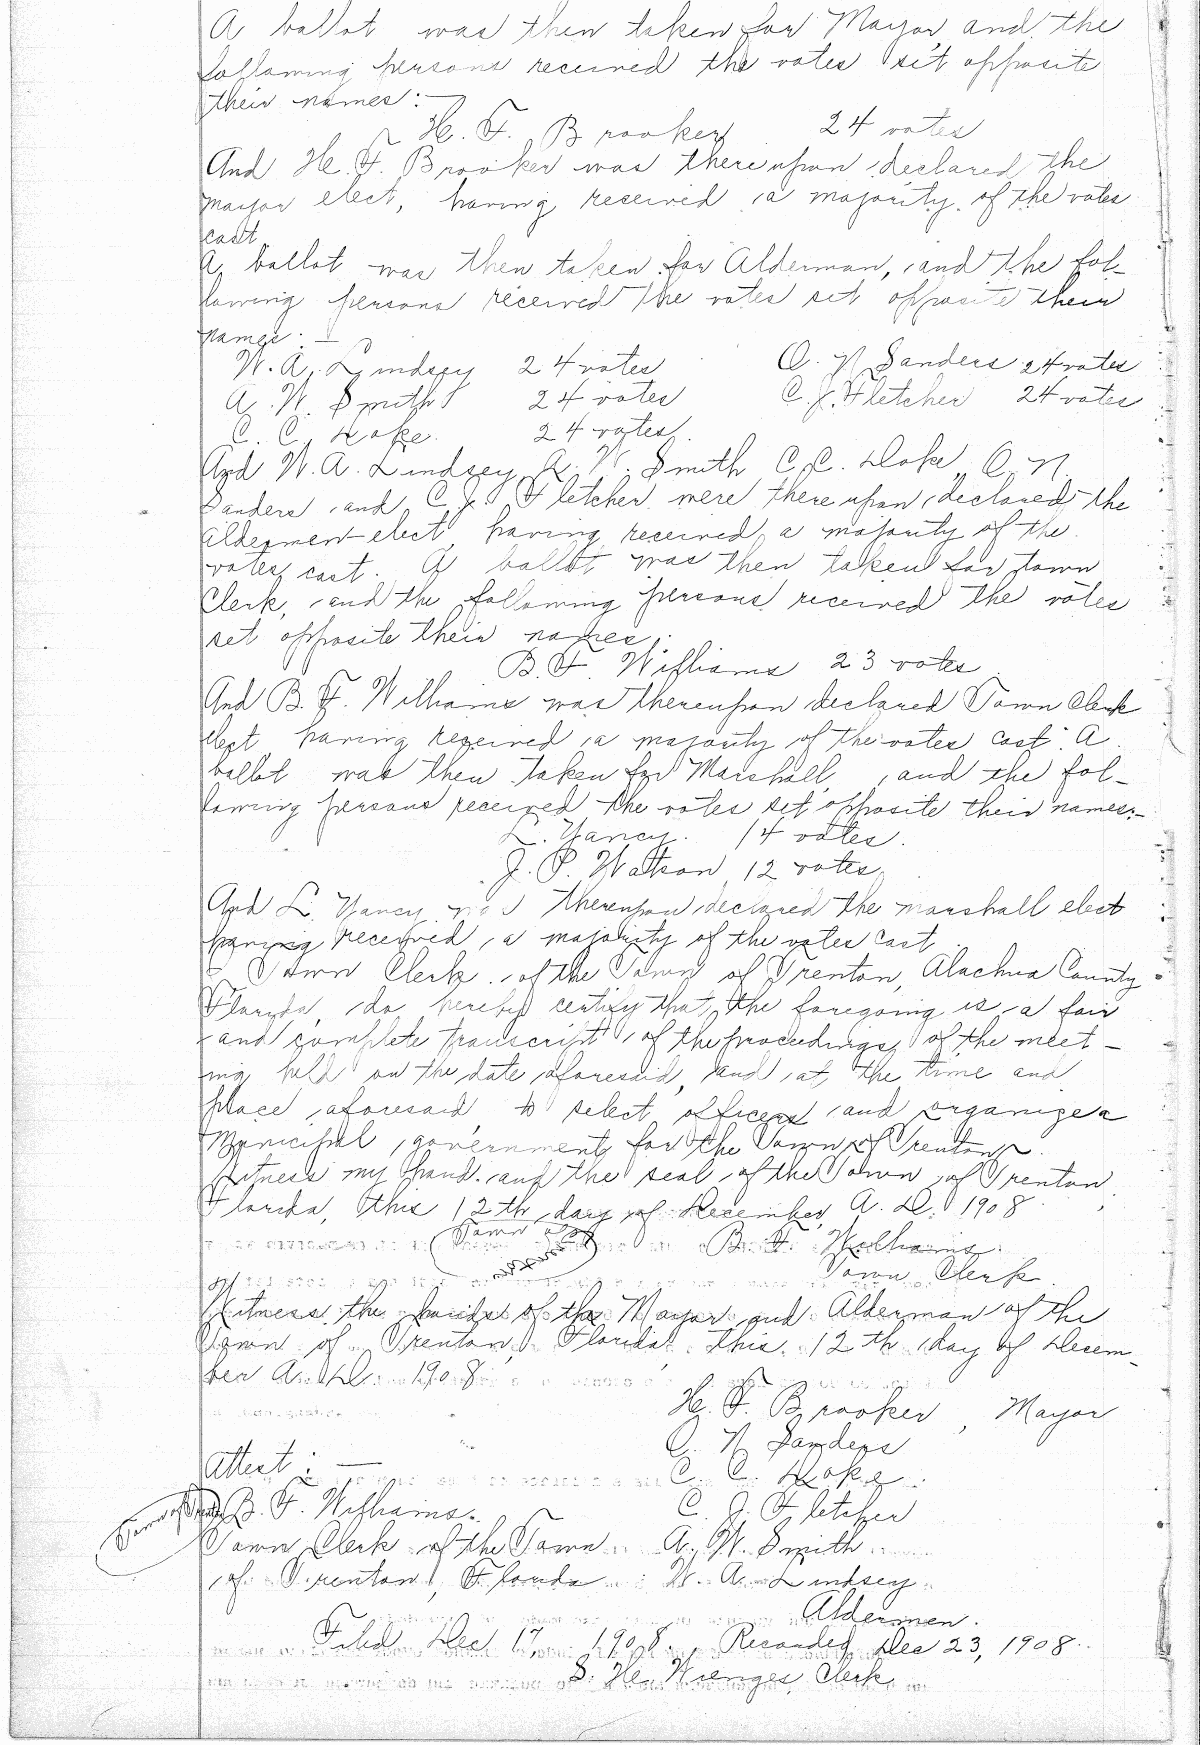 A ballot was then taken for Mayor and the
following persons received the votes set opposite
their names:—
H. F. Brooker 24 votes
And H. F. Brooker was thereupon declared the
mayor elect, having received a majority of the votes
cast.
A ballot was then taken for Alderman, and the fol-
lowing persons received the votes set opposite their
names:—
W. A. Lindsey 24 votes O. N. Sanders 24 votes
A. W. Smith 24 votes C. J. Fletcher 24 votes
C. C. Doke. 24 votes.
And W. A. Lindsey A. W. Smith C. C. Doke O. N.
Sanders and C. J. Fletcher were thereupon declared the
aldermen-elect having received a majority of the
votes cast. A ballot was then taken for town
Clerk, and the following persons received the votes
set opposite their names:
B. F. Williams 23 votes
And B. F. Williams was thereupon declared Town Clerk
elect having received a majority of the votes cast. A
ballot was then taken for Marshall, and the fol-
lowing persons received the votes set opposite their names:—
L. Yancy. 14 votes.
J. P. Watson 12 votes,
And L. Yancy was thereupon declared the marshall elect
having received a majority of the votes cast.
Town Clerk of the Town of Trenton, Alachua County
Florida, do hereby certify that the foregoing is a fair
and complete transcript of the proceedings of the meet-
ing held on the date aforesaid, and at the time and
place aforesaid to select officers and organize a
Municipal government for the Town of Trenton.
Witness my hand and the seal of the Town of Trenton
Florida, this 12th day of December, A. D. 1908
Town of
Trenton
B. F. Williams.
Town Clerk.
Witness the hands of the Mayor and Alderman of the
Town of Trenton, Florida, this 12th day of Decem-
ber A. D. 1908
H. F. Brooker, Mayor
O. N. Sanders
Attest:— C. C. Doke.
B. F. Williams. C. J. Fletcher
Town of Trenton
Town Clerk of the Town A. W. Smith
of Trenton, Florida W. A. Lindsey
Aldermen.
Filed Dec 17, 1908. Recorded Dec 23, 1908.
S. H. Wienges, Clerk